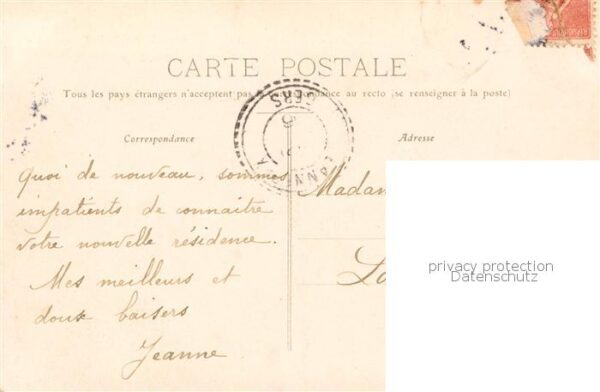 CARTE POSTALE
Tous les pays étrangers n'acceptent pas la correspondance au recto (se renseigner à la poste)
Correspondance
Adresse
GERS
Quoi de nouveau, sommes
impatients de connaitre
votre nouvelle résidence.
Mes meilleurs et
doux baisers
Jeanne
Madam
privacy protection
Datenschutz